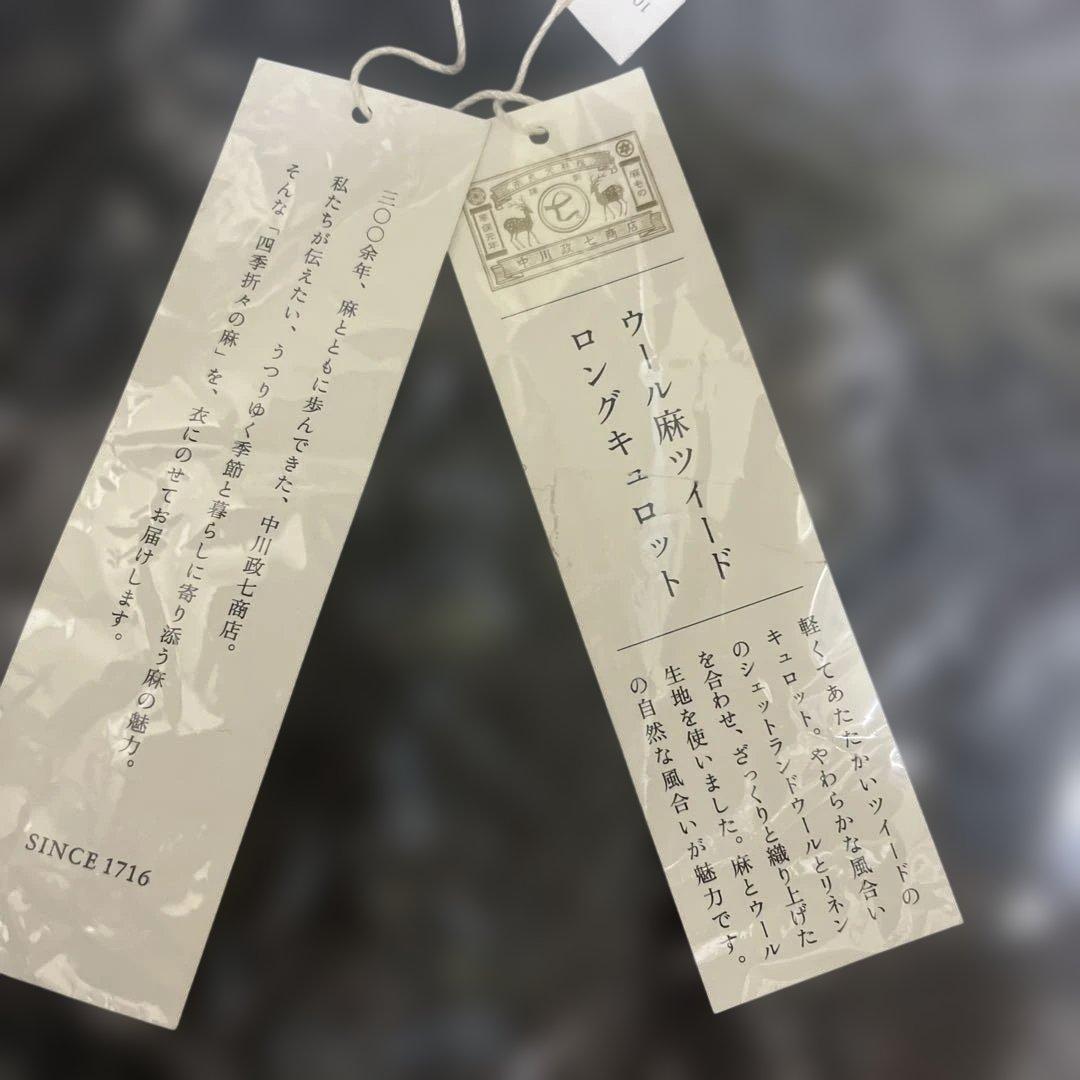 三〇〇余年、麻とともに歩んできた、中川政七商店。
私たちが伝えたい、うつりゆく季節と暮らしに寄り添う麻の魅力。
そんな「四季折々の麻」を、衣にのせてお届けします。
SINCE 1716
麻もの
七
中川政七商店
ウール麻ツイード
ロングキュロット
軽くてあたたかいツイードの
キュロット。やわらかな風合い
のシェットランドウールとリネン
を合わせ、ざっくりと織り上げた
生地を使いました。麻とウール
の自然な風合いが魅力です。